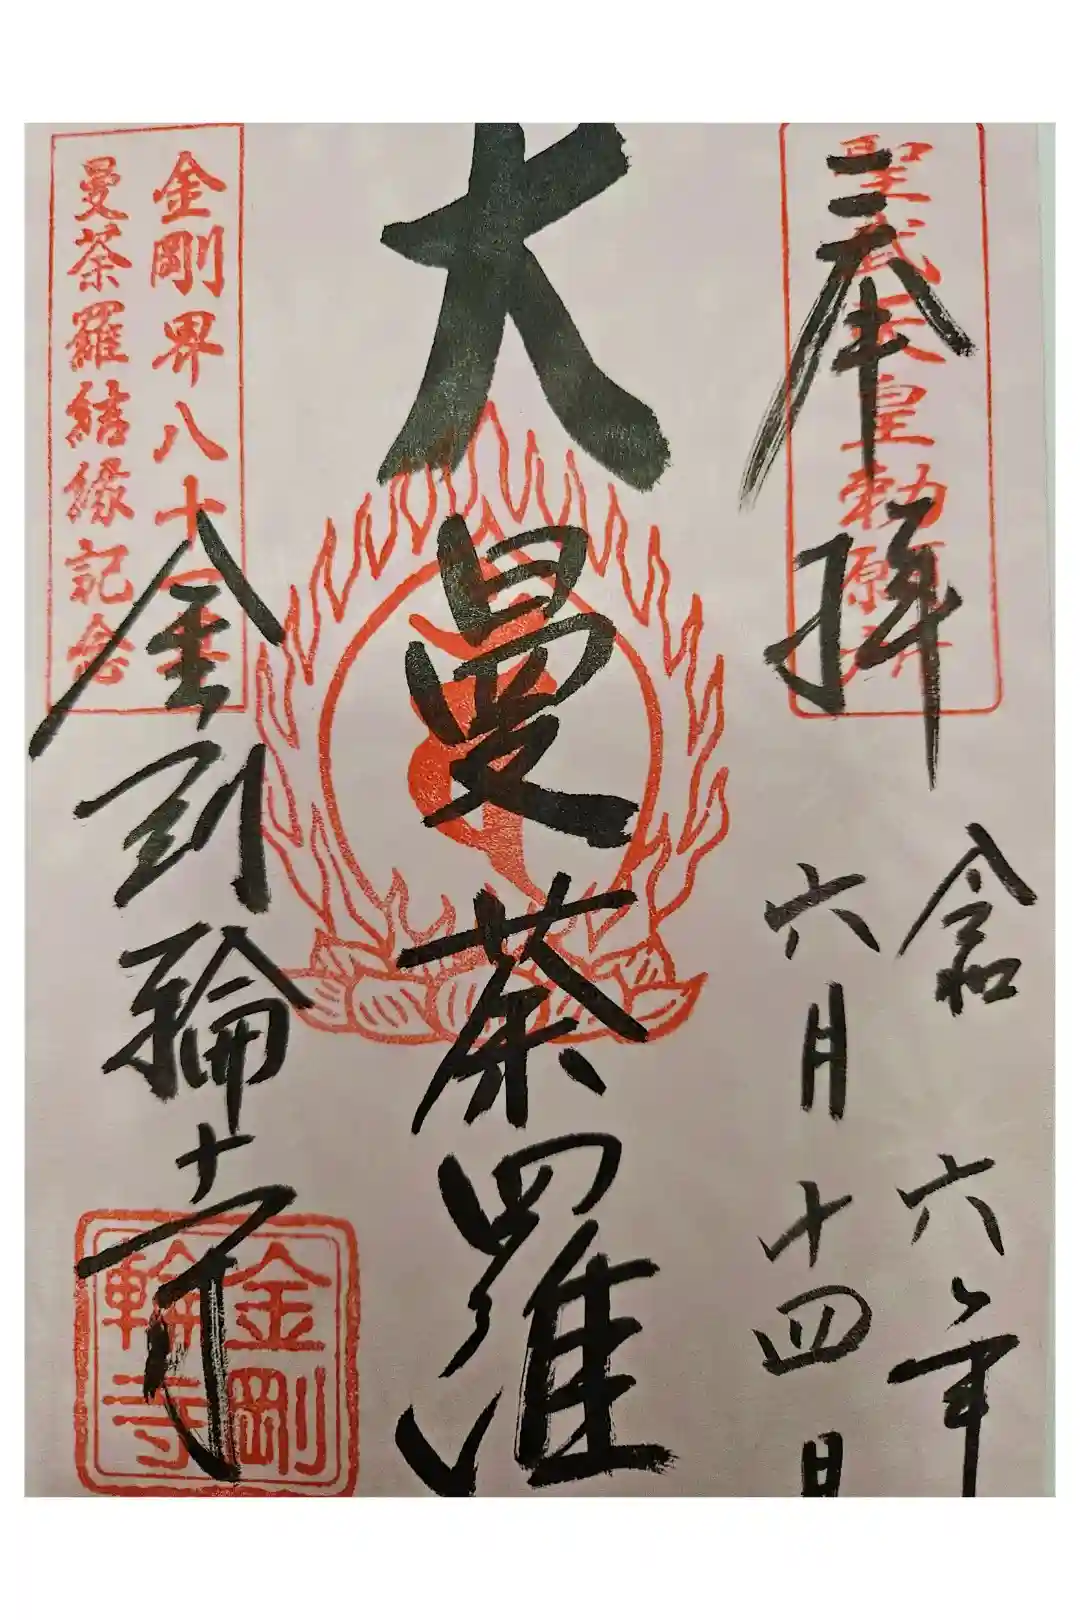 奉拝
聖武天皇勅願所
令和六年
六月十四日
大曼荼羅
金剛界八十一尊
曼荼羅結縁記念
金剛輪寺
金剛
輪寺